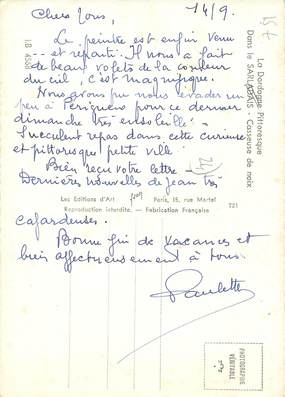 14/9.
Chers vous,
Le peintre est enfin venu
et reparti. Il nous a fait
de beaux volets de la couleur
du ciel, c'est magnifique.
Nous avons pu nous évader un
peu à Périgueux pour ce dernier
dimanche très ensoleillé.
Succulent repas dans cette curieuse
et pittoresque petite ville.
Bien reçu votre lettre -
Dernières nouvelles de Jean très
cafardeuses.
Bonne fin de vacances et
bien affectueusement à tous.
Paulette
La Dordogne Pittoresque
Dans le SARLADAIS - Casseuse de noix
Les Editions d'Art
Paris, 15, rue Martel
Reproduction interdite. - Fabrication Française
721
24
PHOTOGRAPHIE
VÉRITABLE